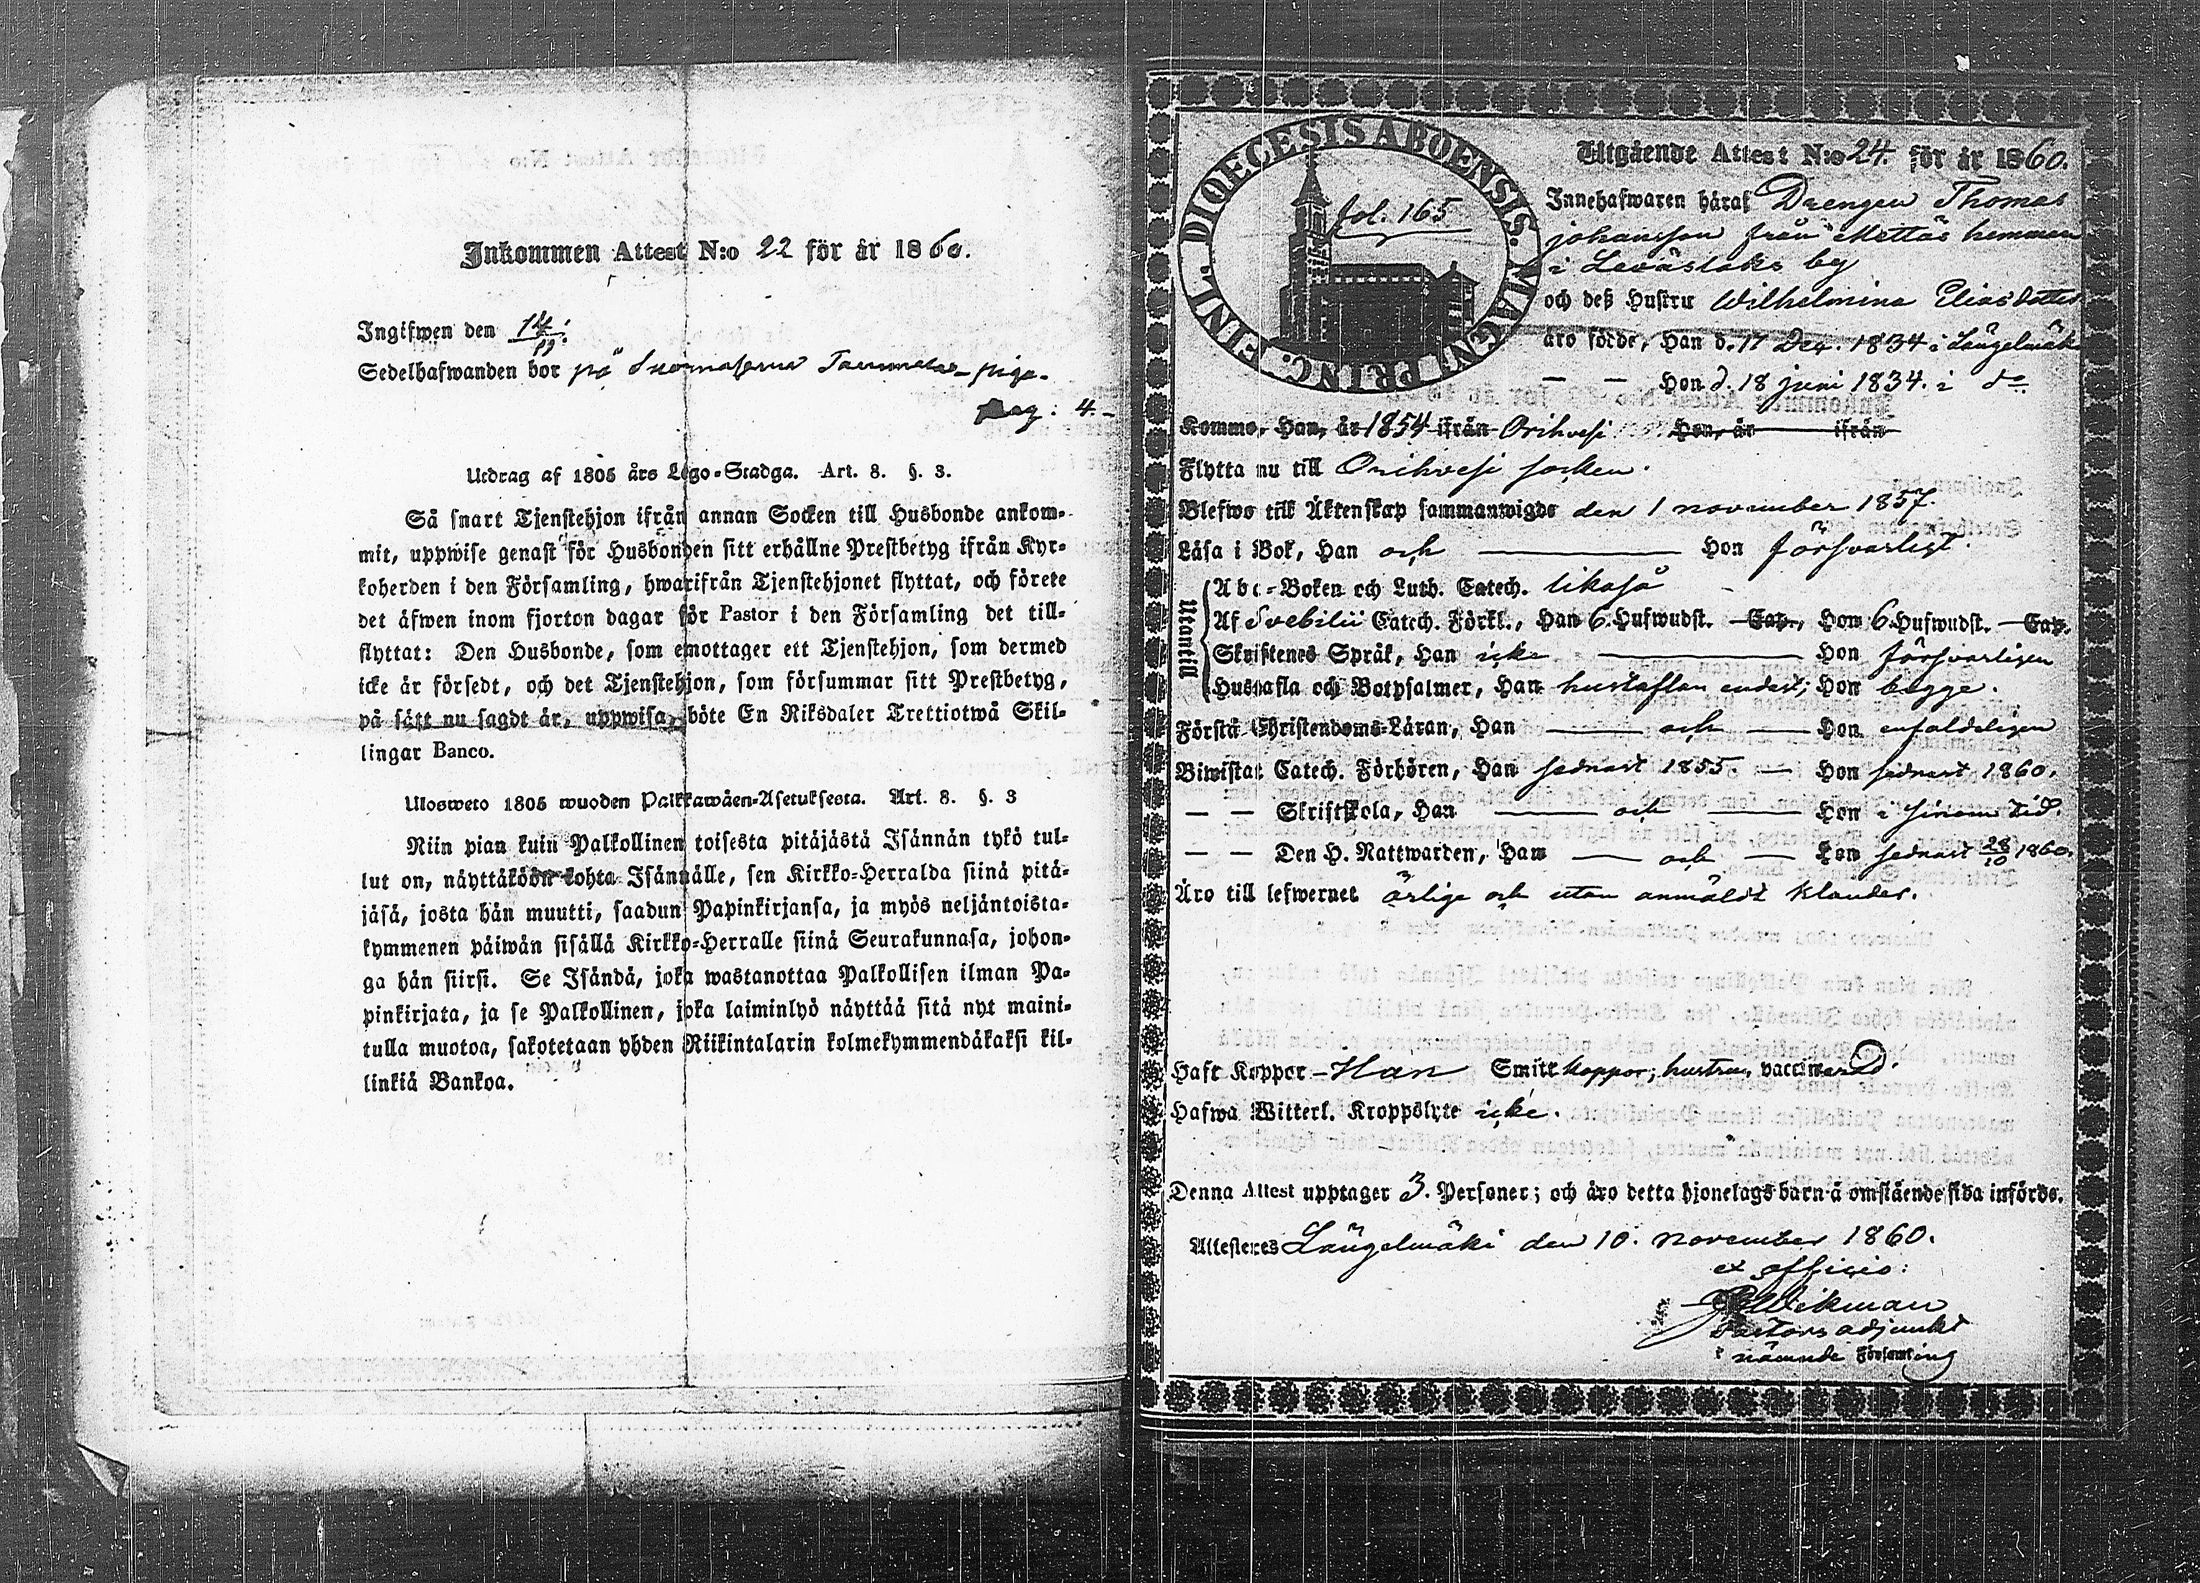 Inkommen Attest N:o 22 för år 1860.
Ingifwen den 14/11.
Sedelhafwanden bor på piga.
pag: 4.
Utdrag af 1805 års Lego-Stadga. Art. 8. §. 3.
Så snart Tjenstehjon ifrån annan Socken till Husbonde ankom-
mit, uppwise genast för Husbonden sitt erhållne Prestbetyg ifrån Kyr-
koherden i den Församling, hwarifrån Tjenstehjonet flyttat, och förete
det äfwen inom fjorton dagar för Pastor i den Församling det till-
flyttat: Den Husbonde, som emottager ett Tjenstehjon, som dermed
icke är försedt, och det Tjenstehjon, som försummar sitt Prestbetyg,
på sätt nu sagdt är, uppwisa, böte En Riksdaler Trettiotwå Skil-
lingar Banco.
Ulosweto 1805 wuoden Palkkawäen-Asetuksesta. Art. 8. §. 3
Niin pian kuin Palkollinen toisesta pitäjästä Isännän tykö tul-
lut on, näyttäköön kohta Isännälle, sen Kirkko-Herralda siinä pitä-
jäsä, josta hän muutti, saadun Papinkirjansa, ja myös neljäntoista-
kymmenen päiwän sisällä Kirkko-Herralle siinä Seurakunnasa, johon-
ga hän siirsi. Se Isändä, joka wastanottaa Palkollisen ilman Pa-
pinkirjata, ja se Palkollinen, joka laiminlyö näyttää sitä nyt maini-
tulla muotoa, sakotetaan yhden Riikintalarin kolmekymmendäkaksi kil-
linkiä Bankoa.
DIOECESIS ABOENSIS. MAGNI PRINC. FINL.
fol. 165
Utgående Attest N:o 24. för år 1860.
Innehafwaren häraf Drengen Thomas
Johansson från Mattas hemman
i Leväslaks by
och deß Hustru Wilhelmina Eliasdotter
äro födde, Han d. 17 Dec. 1834 i Längelmäki
— — Hon d. 18 juni 1834. i do
Komme, Han, år 1854 ifrån Orihvesi Hon, år ifrån
Flytta nu till Orihvesi socken.
Blefwo till Äktenskap sammanwigde den 1 november 1857.
Läsa i Bok, Han och — Hon försvarligt.
Utantill
Abc-Boken och Luth. Catech. likaså
Af Svebilii Catech. Förkl., Han 6 Hufwudst. — Cap., Hon 6 Hufwudst. — Cap.
Skriftenes Språk, Han icke — Hon försvarligen
Hustafla och Botpsalmer, Han hustaflan endast; Hon begge.
Förstå Christendoms-Läran, Han — och — Hon enfaldeligen
Biwistat Catech. Förhören, Han sednast 1855. — Hon sednast 1860.
— — Skriftskola, Han — och — Hon i sinom tid.
— — Den H. Nattwarden, Han — och — Hon sednast 28/10 1860.
Äro till lefwernet ärlige och utan anmäldt klander.
Haft Koppor – Han Smittkoppor; hustrun, vaccinerad.
Hafwa Witterl. Kroppslyte icke.
Denna Attest upptager 3. Personer; och äro detta hjonelags barn å omstående sida införde.
Attesteres Längelmäki den 10. november 1860.
ex officio:
Wikman
Pastors adjunkt
i nämnde Församling